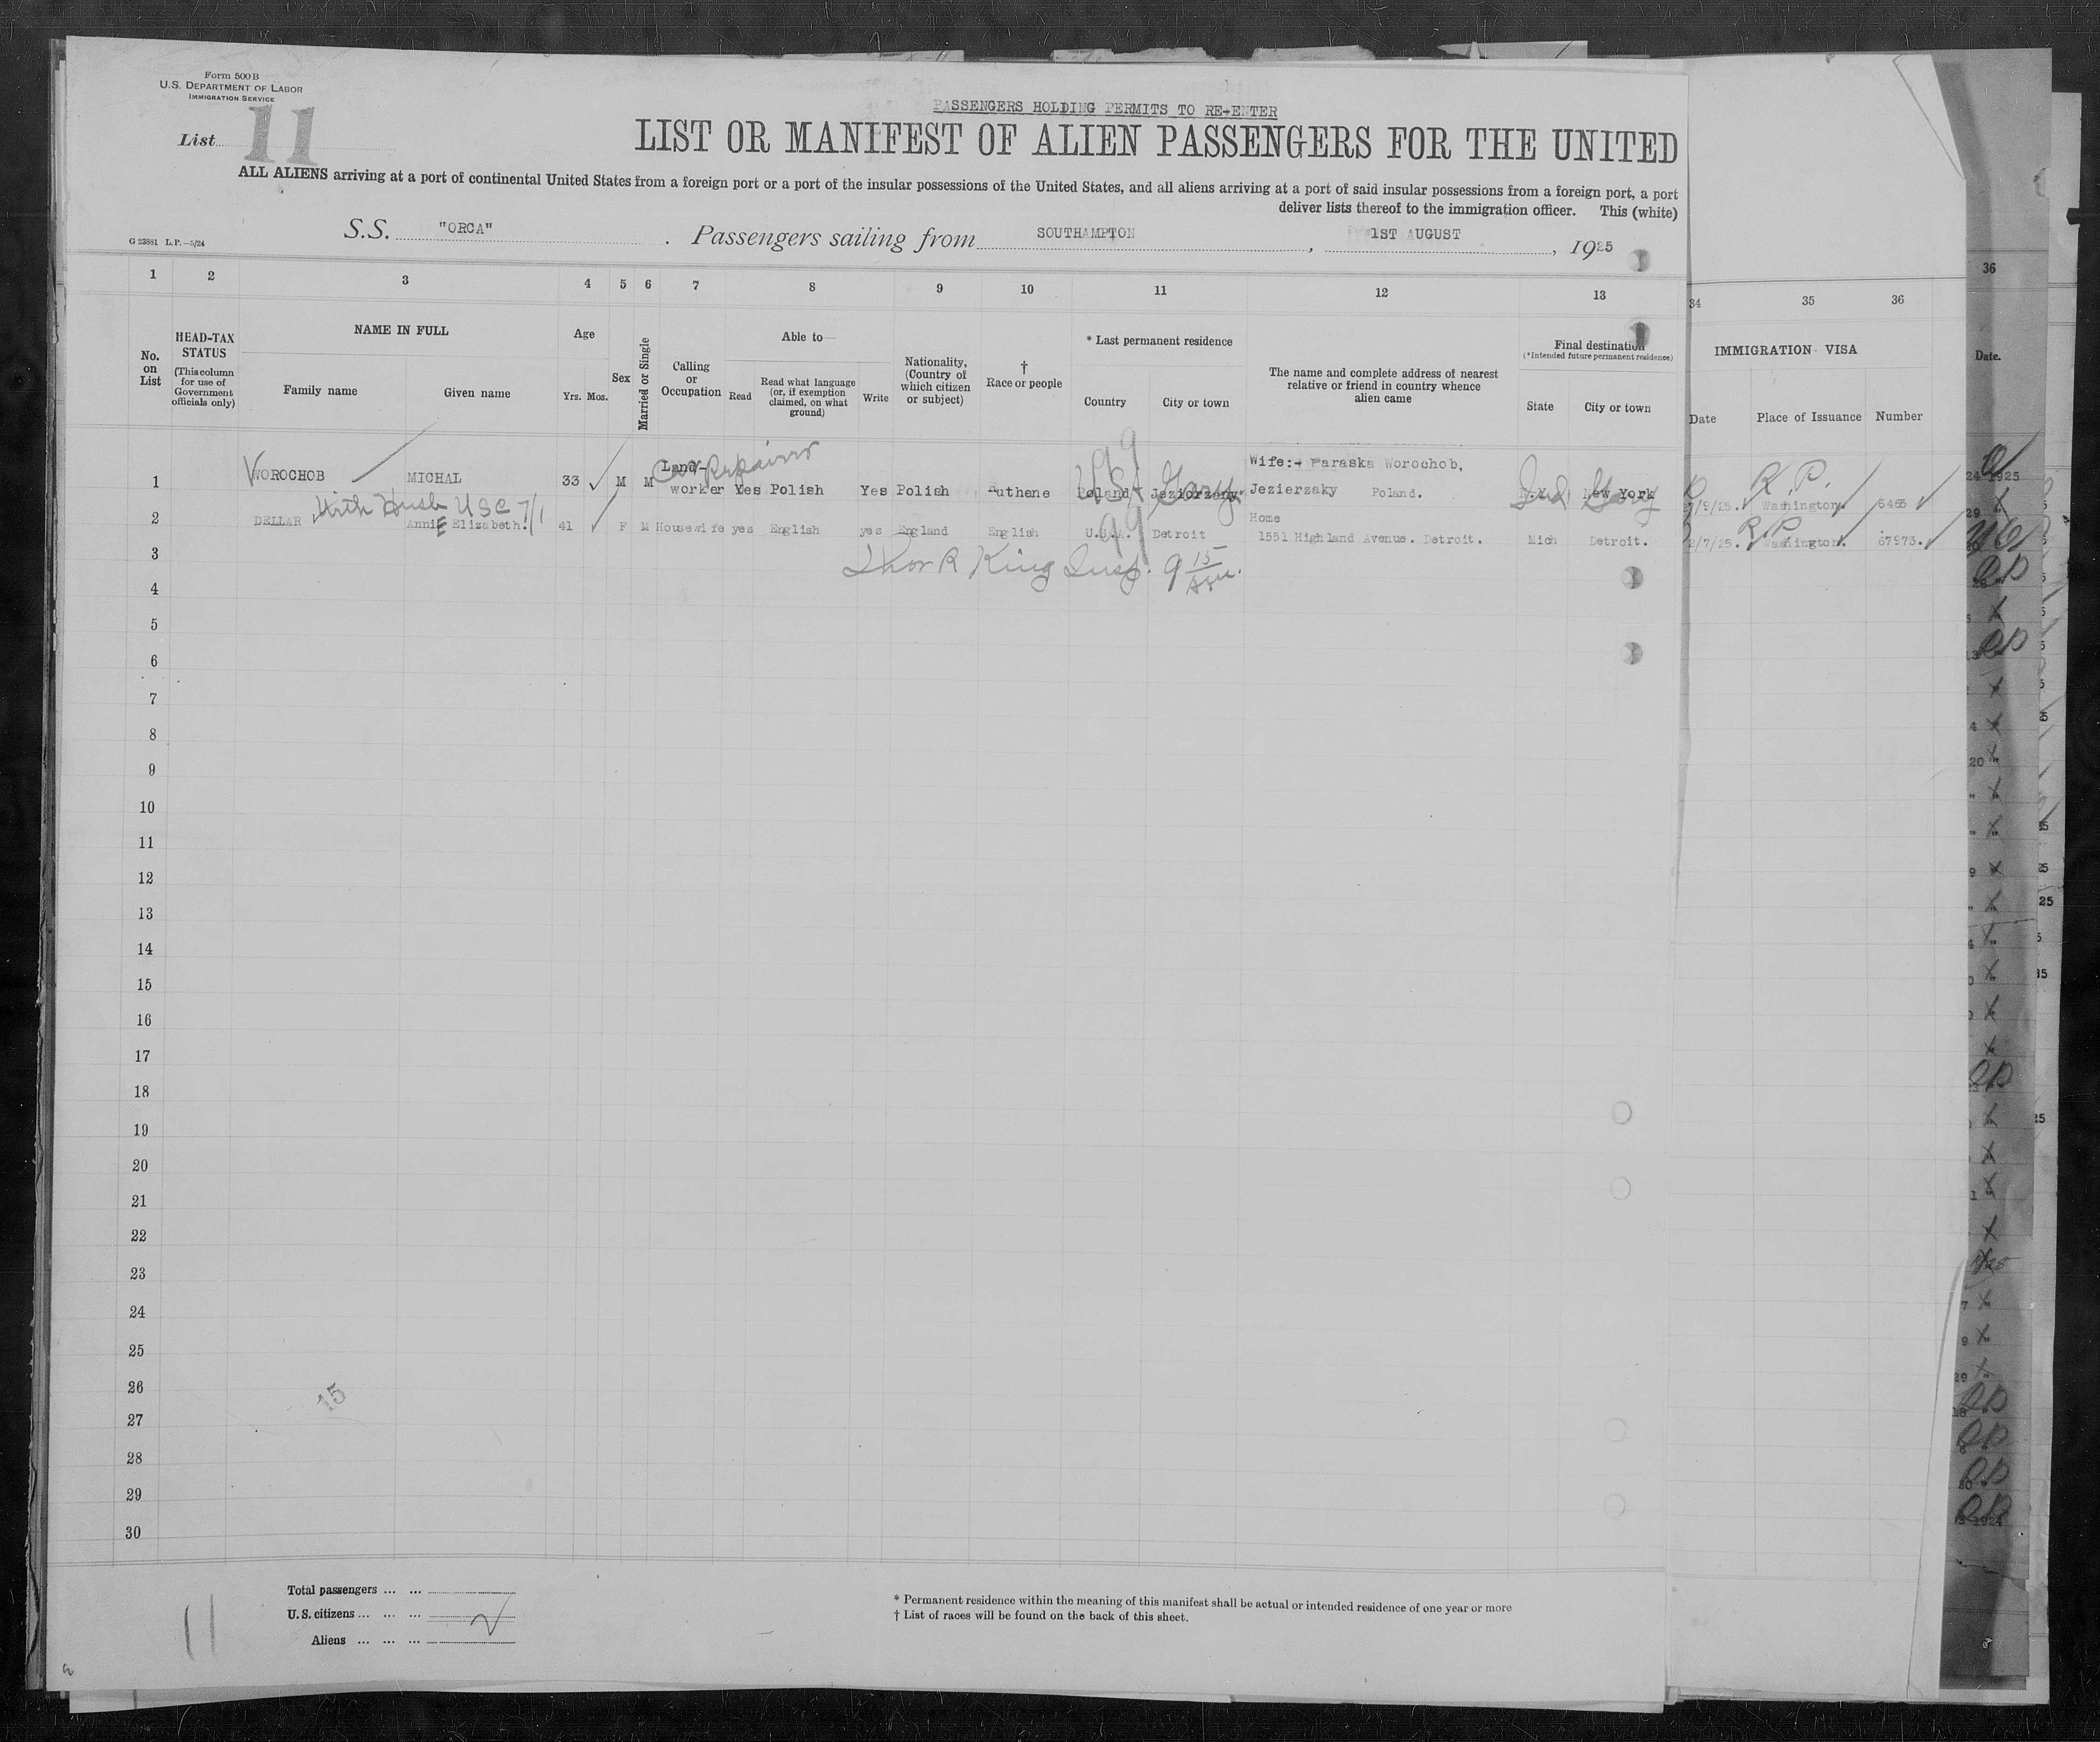 Form 500 B
U.S. DEPARTMENT OF LABOR
IMMIGRATION SERVICE
List 11
PASSENGERS HOLDING PERMITS TO RE-ENTER
LIST OR MANIFEST OF ALIEN PASSENGERS FOR THE UNITED
ALL ALIENS arriving at a port of continental United States from a foreign port or a port of the insular possessions of the United States, and all aliens arriving at a port of said insular possessions from a foreign port, a port
deliver lists thereof to the immigration officer. This (white)
G 23881 L.P.—5/24
S.S. "ORCA" . Passengers sailing from SOUTHAMPTON , 1ST AUGUST , 1925
1 2 3 4 5 6 7 8 9 10 11 12 13 34 35 36
No. on List
HEAD-TAX STATUS (This column for use of Government officials only)
NAME IN FULL
Family name Given name
Age
Yrs. Mos.
Sex
Married or Single
Calling or Occupation
Able to—
Read
Read what language (or, if exemption claimed, on what ground)
Write
Nationality, (Country of which citizen or subject)
† Race or people
* Last permanent residence
Country City or town
The name and complete address of nearest relative or friend in country whence alien came
Final destination
(*Intended future permanent residence)
State City or town
IMMIGRATION VISA
Date Place of Issuance Number
36
Date.
Car Repairer
Land-
99
Wife:- Paraska Worochob,
1 WOROCHOB MICHAL 33 M M worker Yes Polish Yes Polish Ruthene Poland Jeziorzany Jezierzaky Poland. N.Y. New York 7/9/25. Washington. 6465
USA Gary Ind Gary R.P.
With Husb USC 7/1
Home
2 DELLAR AnniE Elizabeth. 41 F M Housewife yes English yes England English U.S.A. Detroit 1551 Highland Avenue. Detroit. Mich Detroit. 2/7/25. Washington. 67973.
99 R.P.
Thor R King Insp. 9 15 am.
3
4
5
6
7
8
9
10
11
12
13
14
15
16
17
18
19
20
21
22
23
24
25
26
27
28
29
30
15
11
Total passengers ... ...
U.S. citizens ... ... ...
Aliens ... ... ...
* Permanent residence within the meaning of this manifest shall be actual or intended residence of one year or more
† List of races will be found on the back of this sheet.